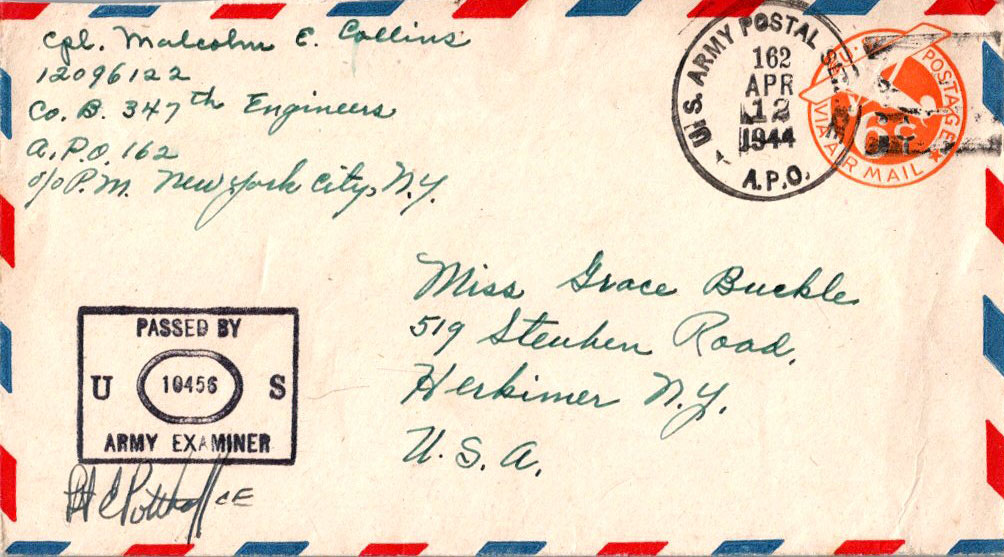 Cpl. Malcolm E. Collins
12096122
Co. B. 347th Engineers
A.P.O. 162
c/o P.M. New York City, N.Y.
U.S. ARMY POSTAL SERVICE
162
APR
12
1944
A.P.O.
U.S. POSTAGE
6¢
VIA AIR MAIL
Miss Grace Buckle
519 Steuben Road,
Herkimer N.Y.
U.S.A.
PASSED BY
U 10456 S
ARMY EXAMINER
CE